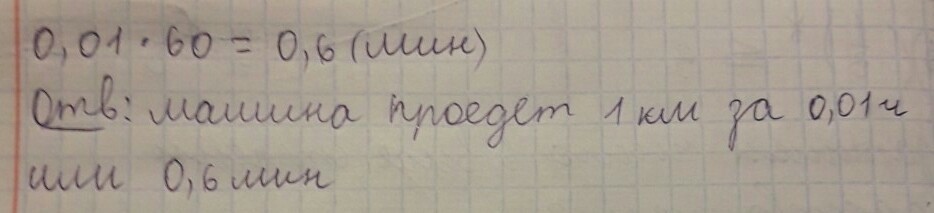 0,01 · 60 = 0,6 (мин)
Отв: машина проедет 1 км за 0,01 ч
или 0,6 мин